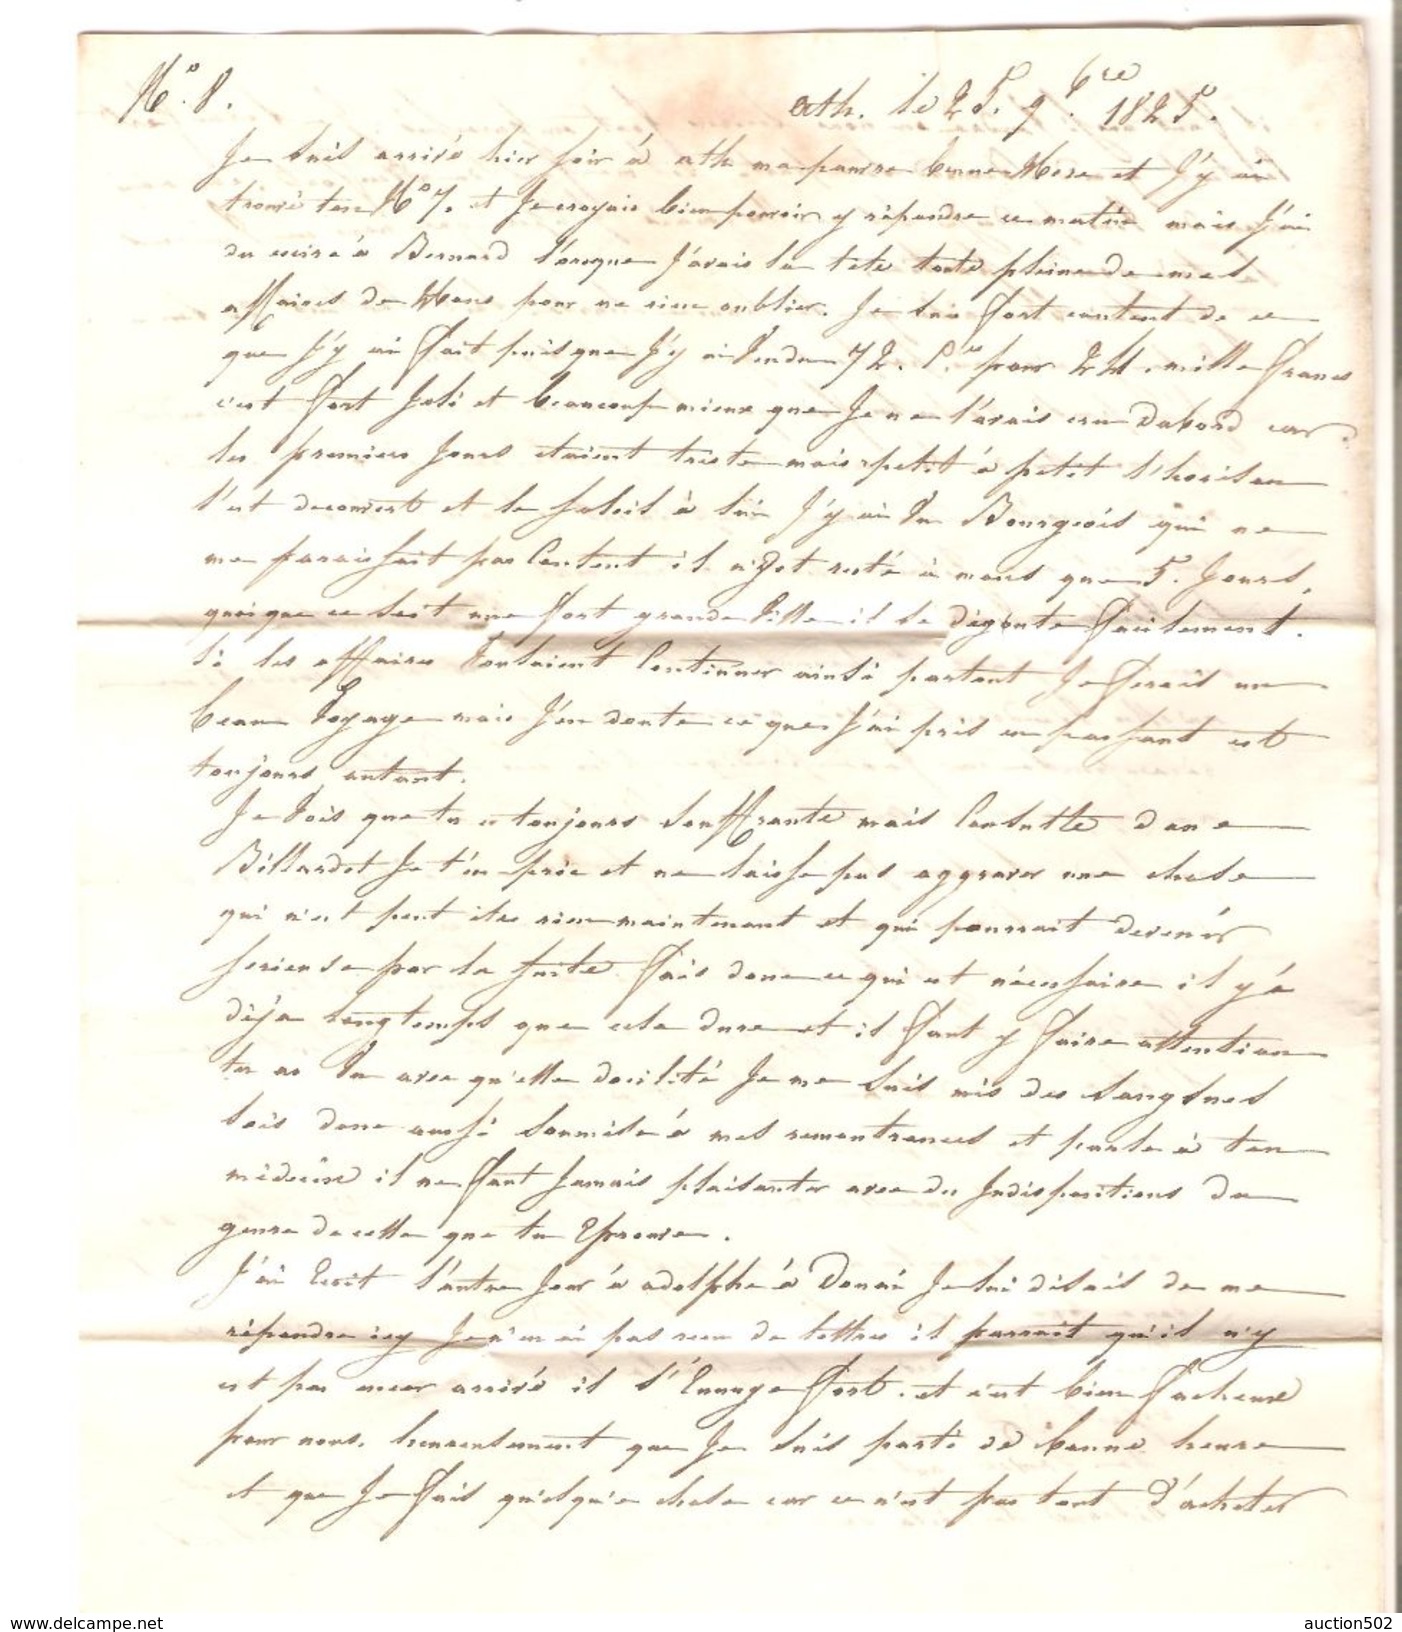 N° 8. ath. le 25. 9.bre 1825.
Je suis arrivé hier soir à ath ma pauvre bonne Mere et J'y ai
trouvé ton N° 7. et Je croyais bien pouvoir y répondre ce matin mais J'ai
du ecrire à Bernard lorsque J'avais la tête toute pleine de mes
affaires de Mons pour ne rien oublier. Je suis fort content de ce
que J'y ai fait puisque J'y ai Vendu 72. P.ces pour 24. mille francs
c'est fort Joli et beaucoup mieux que Je ne l'avais cru Dabord car
les premiers Jours etaient triste mais petit à petit l'horison
s'est decouvert et le soleil à lui J'y ai Vu Bourgeois qui ne
me paraissait pas Content il n'est resté à mons que 5. Jours.
quoique ce soit une fort grande Ville il se dégoute facilement.
Si les affaires Voulaient Continuer ainsi partout Je ferais un
beau Voyage mais J'en doute ce que J'ai pris en passant est
toujours autant.
Je Vois que tu es toujours souffrante mais Consulte donc
Billardet Je t'en prie et ne laisse pas aggraver une chose
qui n'est peut être rien maintenant et qui pourrait devenir
serieuse par la suite. fais donc ce qui est nécessaire il y à
déja longtemps que cela dure et il faut y faire attention
tu as Vu avec qu'elle docilité Je me suis mis des sangsues
sois donc aussi soumise à mes remontrances et parle à ton
médecin il ne faut Jamais plaisanter avec des Indispositions du
genre de celle que tu Eprouve.
J'ai Ecrit l'autre Jour à adolphe à Douai Je lui disais de me
répondre icy Je n'en ai pas recu de lettres il parrait qu'il n'y
est pas encor arrivé il s'Ennuye fort. et c'est bien facheux
pour nous. heureusement que Je suis parti de bonne heure
et que Je fais quelqu'e chose car ce n'est pas tout d'acheter
auction502
© www.delcampe.net